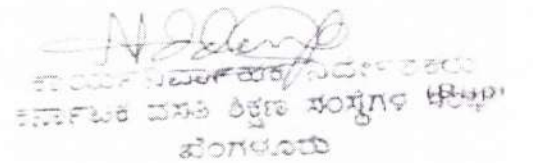 ಕಾರ್ಯನಿರ್ವಾಹಕ ನಿರ್ದೇಶಕರು
ಕರ್ನಾಟಕ ವಸತಿ ಶಿಕ್ಷಣ ಸಂಸ್ಥೆಗಳ ಸಂಘ
ಬೆಂಗಳೂರು